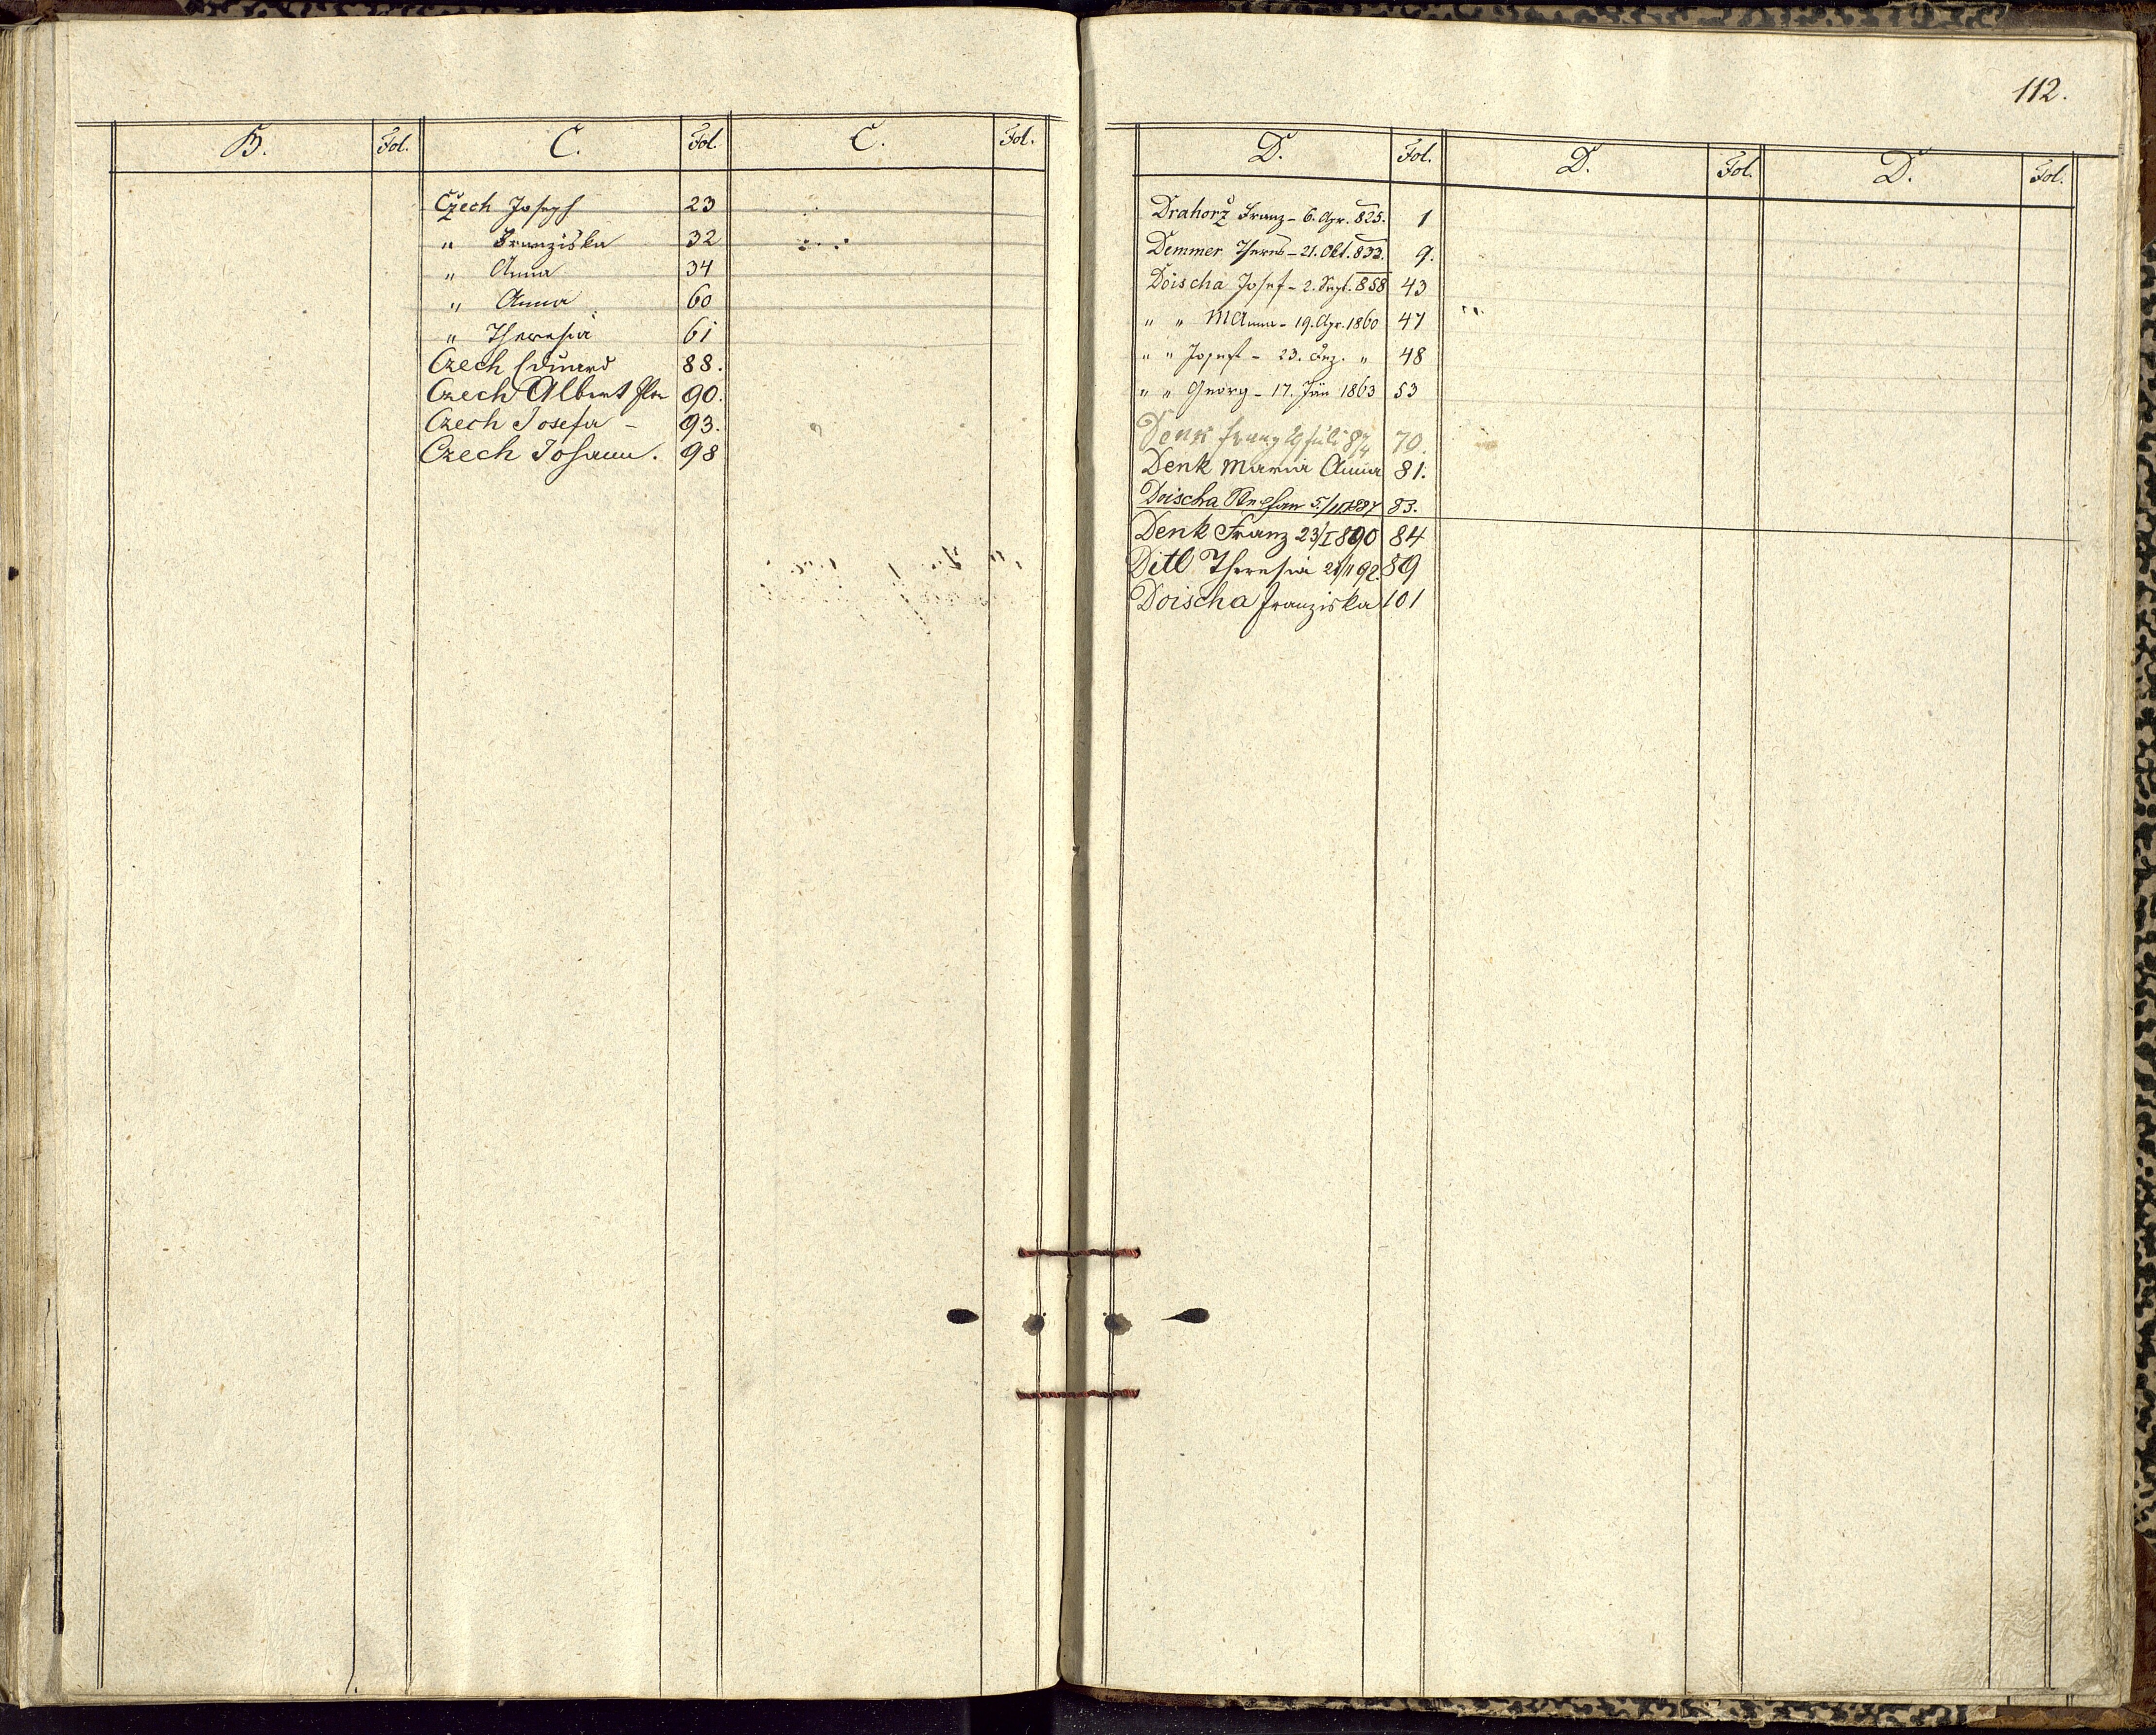 B. Fol. C. Fol. C. Fol.
Czech Joseph 23
" Franziska 32
" Anna 34
" Anna 60
" Theresia 61
Czech Eduard 88.
Czech Albert 90.
Czech Josefa - 93.
Czech Johann. 98
112.
D. Fol. D. Fol. D. Fol.
Drahorz Franz - 6. Apr. 825. 1
Demmer Theres - 21. Okt. 833. 9.
Doischa Josef - 2. Sept. 858 43
" " M Anna - 19. Apr. 1860 47
" " Josef - 23. Dez. " 48
" " Georg - 17. Jän 1863 53
Denk Franz 29 Juli 874 70.
Denk Maria Anna 81.
Doischa 83.
Denk Franz 23/I 890 84
Ditl Theresia 92. 89
Doischa Franziska 101